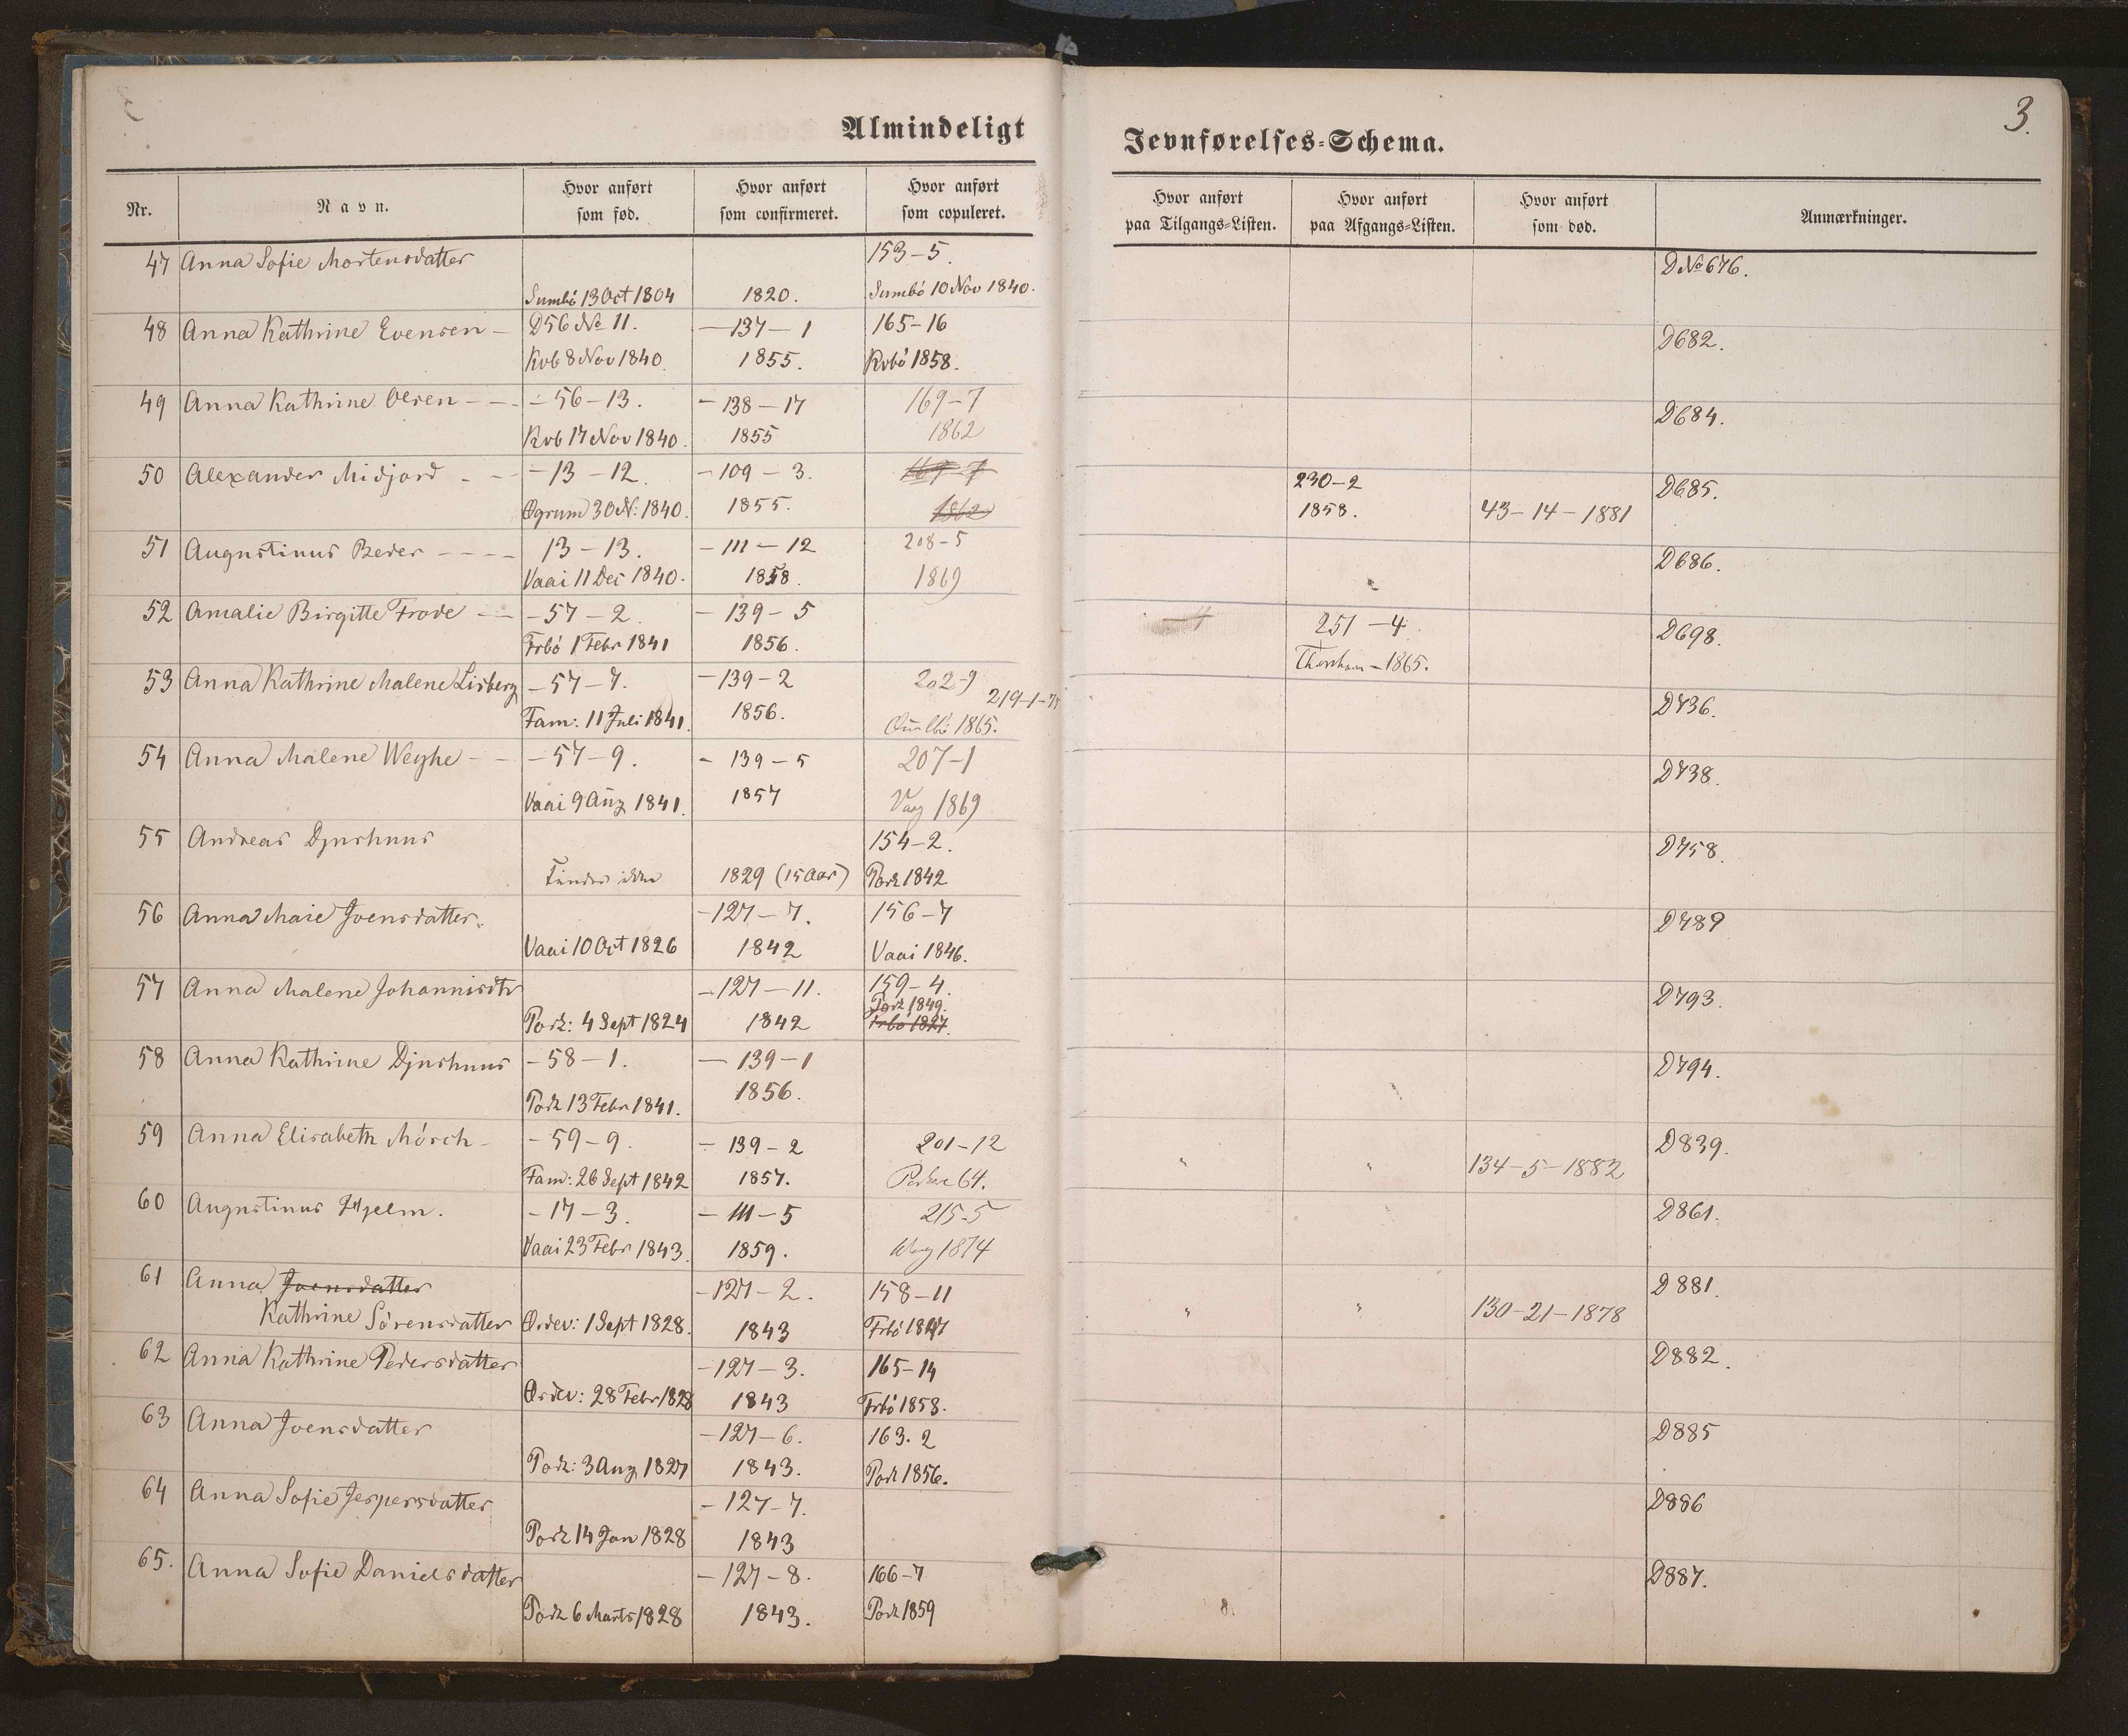 Almindeligt
Jevnførelses-Schema.
3.
Nr.
Navn.
Hvor anført
som fød.
Hvor anført
som confirmeret.
Hvor anført
som copuleret.
Hvor anført
paa Tilgangs-Listen.
Hvor anført
paa Afgangs-Listen.
Hvor anført
som død.
Anmærkninger.
47 Anna Sofie Mortensdatter 153-5. D No 676.
Sumbö 13 Oct 1804 1820. Sumbö 10 Nov 1840.
48 Anna Kathrine Evensen - D56 No 11. - 137 - 1 165-16 D682.
Kvb 8 Nov 1840. 1855. Kvbö 1858.
49 Anna Kathrine Olsen - - - 56-13. - 138 - 17 169-7 D684.
Kvb 17 Nov 1840. 1855 1862
50 Alexander Midjord - - - 13 - 12. - 109 - 3. 169-7 230-2 D685.
Øgrum 30 N: 1840. 1855. 1862 1858. 43-14-1881
51 Augustinus Beder - - - - 13-13. - 111 - 12 208-5 D686.
Vaai 11 Dec 1840. 1858. 1869
52 Amalie Birgitte Trode - - 57 - 2. - 139 - 5 251 - 4. D698.
Frbö 1 Febr 1841 1856. Thorshavn - 1865.
53 Anna Kathrine Malene Lisberg - 57-7. - 139-2 202-9 219-1-75 D736.
Fam: 11 Juli 1841. 1856. 1865.
54 Anna Malene Weyhe - - - 57-9. - 139-5 207-1 D738.
Vaai 9 Aug 1841. 1857 Vaag 1869
55 Andreas Djushuus 154-2. D758.
Findes ikke 1829 (15 Aar) Pork 1842
56 Anna Marie Joensdatter. - 127-7. 156-7 D789
Vaai 10 Oct 1826 1842 Vaai 1846.
57 Anna Malene Johannisdtr - 127-11. 159-4. D793.
Pork 1849.
Pork: 4 Sept 1824 1842 Frbö 1827.
58 Anna Kathrine Djushuus - 58-1. - 139-1 D794.
Pork 13 Febr 1841. 1856.
59 Anna Elisabeth Mörch - - 59-9. - 139-2 201-12 D839.
Fam: 26 Sept 1842 1857. 64. " " 134-5-1882
60 Augustinus Hjelm. - 17-3. - 111-5 215-5 D861.
Vaai 23 Febr 1843. 1859. Vaag 1874
61 Anna Joensdatter - 127-2. 158-11 D881.
Kathrine Sörensdatter Ördev: 1 Sept 1828. 1843 Frbö 1847 " " 130-21-1878
62 Anna Kathrine Pedersdatter - 127-3. 165-14 D882.
Ördev: 28 Febr 1828 1843 Frbö 1858.
63 Anna Joensdatter - 127-6. 163.2 D885
Pork: 3 Aug 1827 1843. Pork 1856.
64 Anna Sofie Jespersdatter - 127-7. D886
Pork 14 Jan 1828 1843
65. Anna Sofie Danielsdatter - 127-8. 166-7 D887.
Pork 6 Marts 1828 1843. Pork 1859